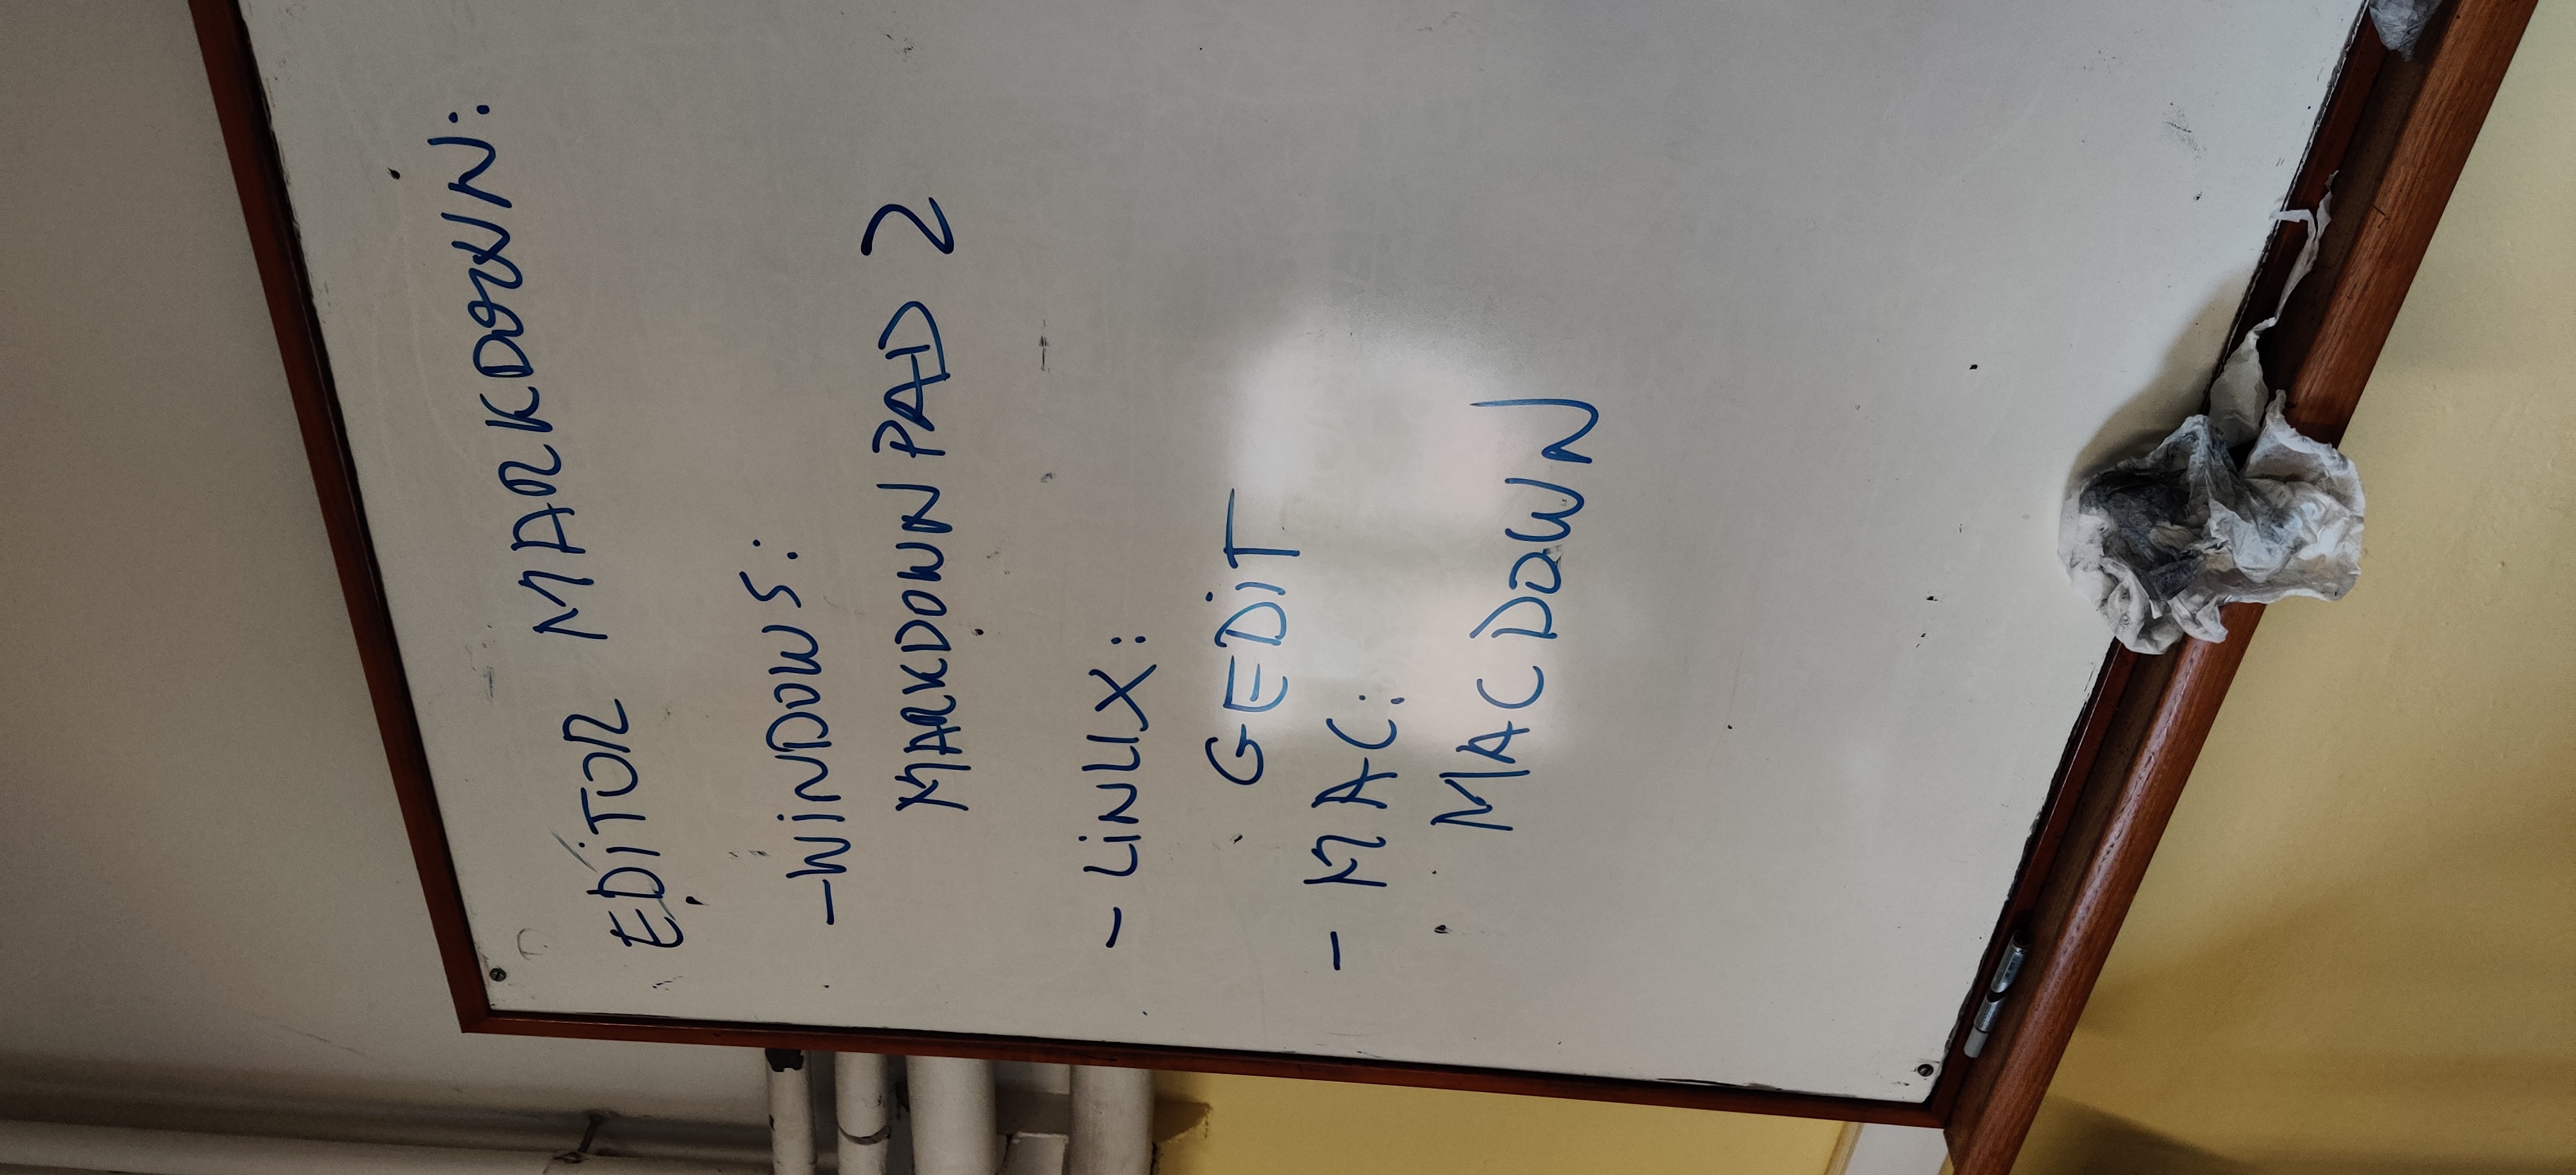 EDITOR MARKDOWN:
- WINDOWS:
MARKDOWNPAD 2
- LINUX:
GEDIT
- MAC:
MACDOWN